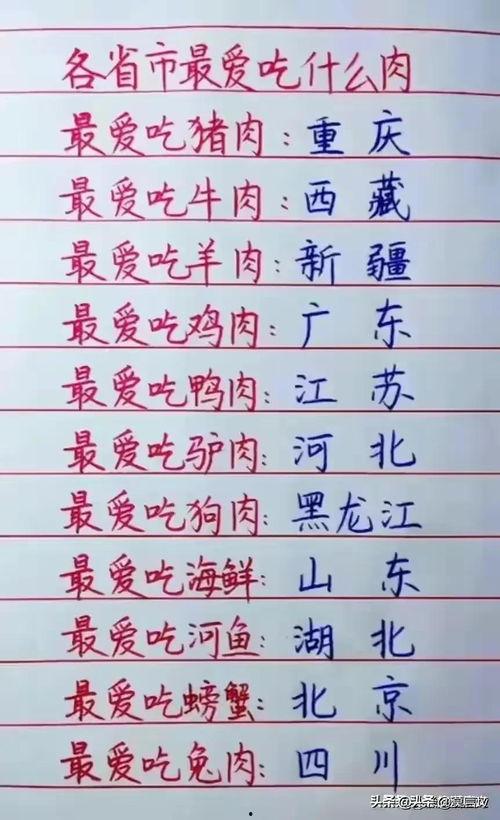 各省市最爱吃什么肉
最爱吃猪肉：重庆
最爱吃牛肉：西藏
最爱吃羊肉：新疆
最爱吃鸡肉：广东
最爱吃鸭肉：江苏
最爱吃驴肉：河北
最爱吃狗肉：黑龙江
最爱吃海鲜：山东
最爱吃河鱼：湖北
最爱吃螃蟹：北京
最爱吃兔肉：四川
头条@头条